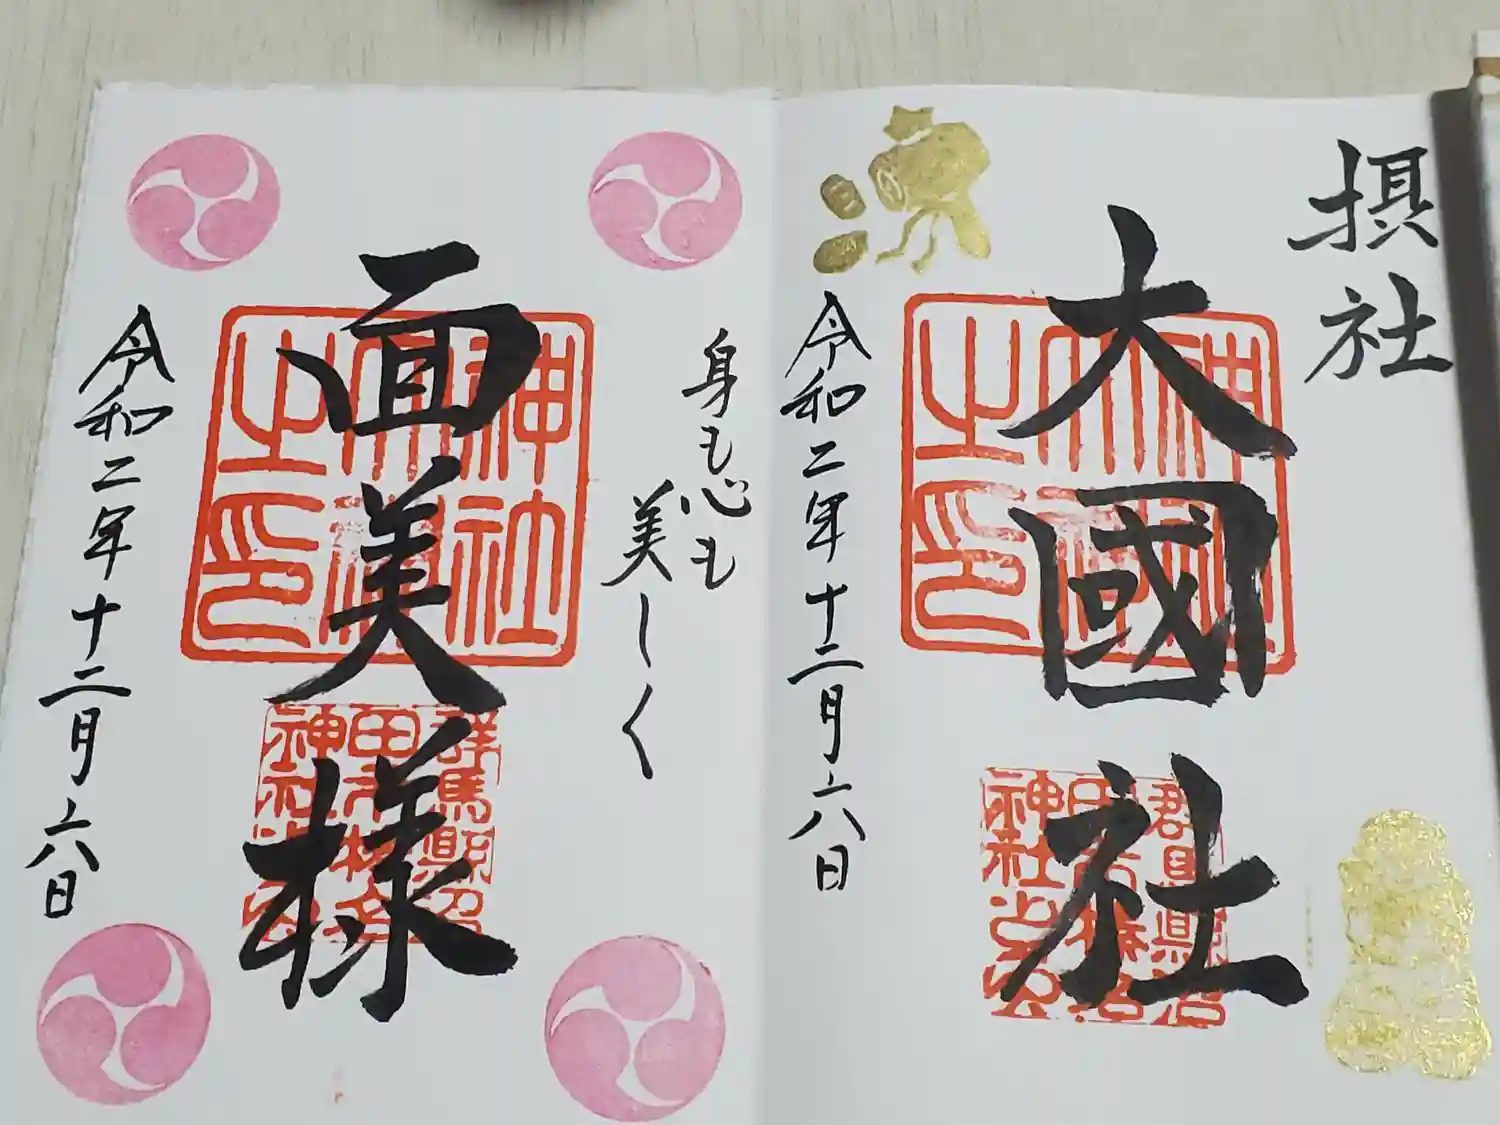 摂社
大國社
令和二年十二月六日
身も心も
美しく
面美様
令和二年十二月六日